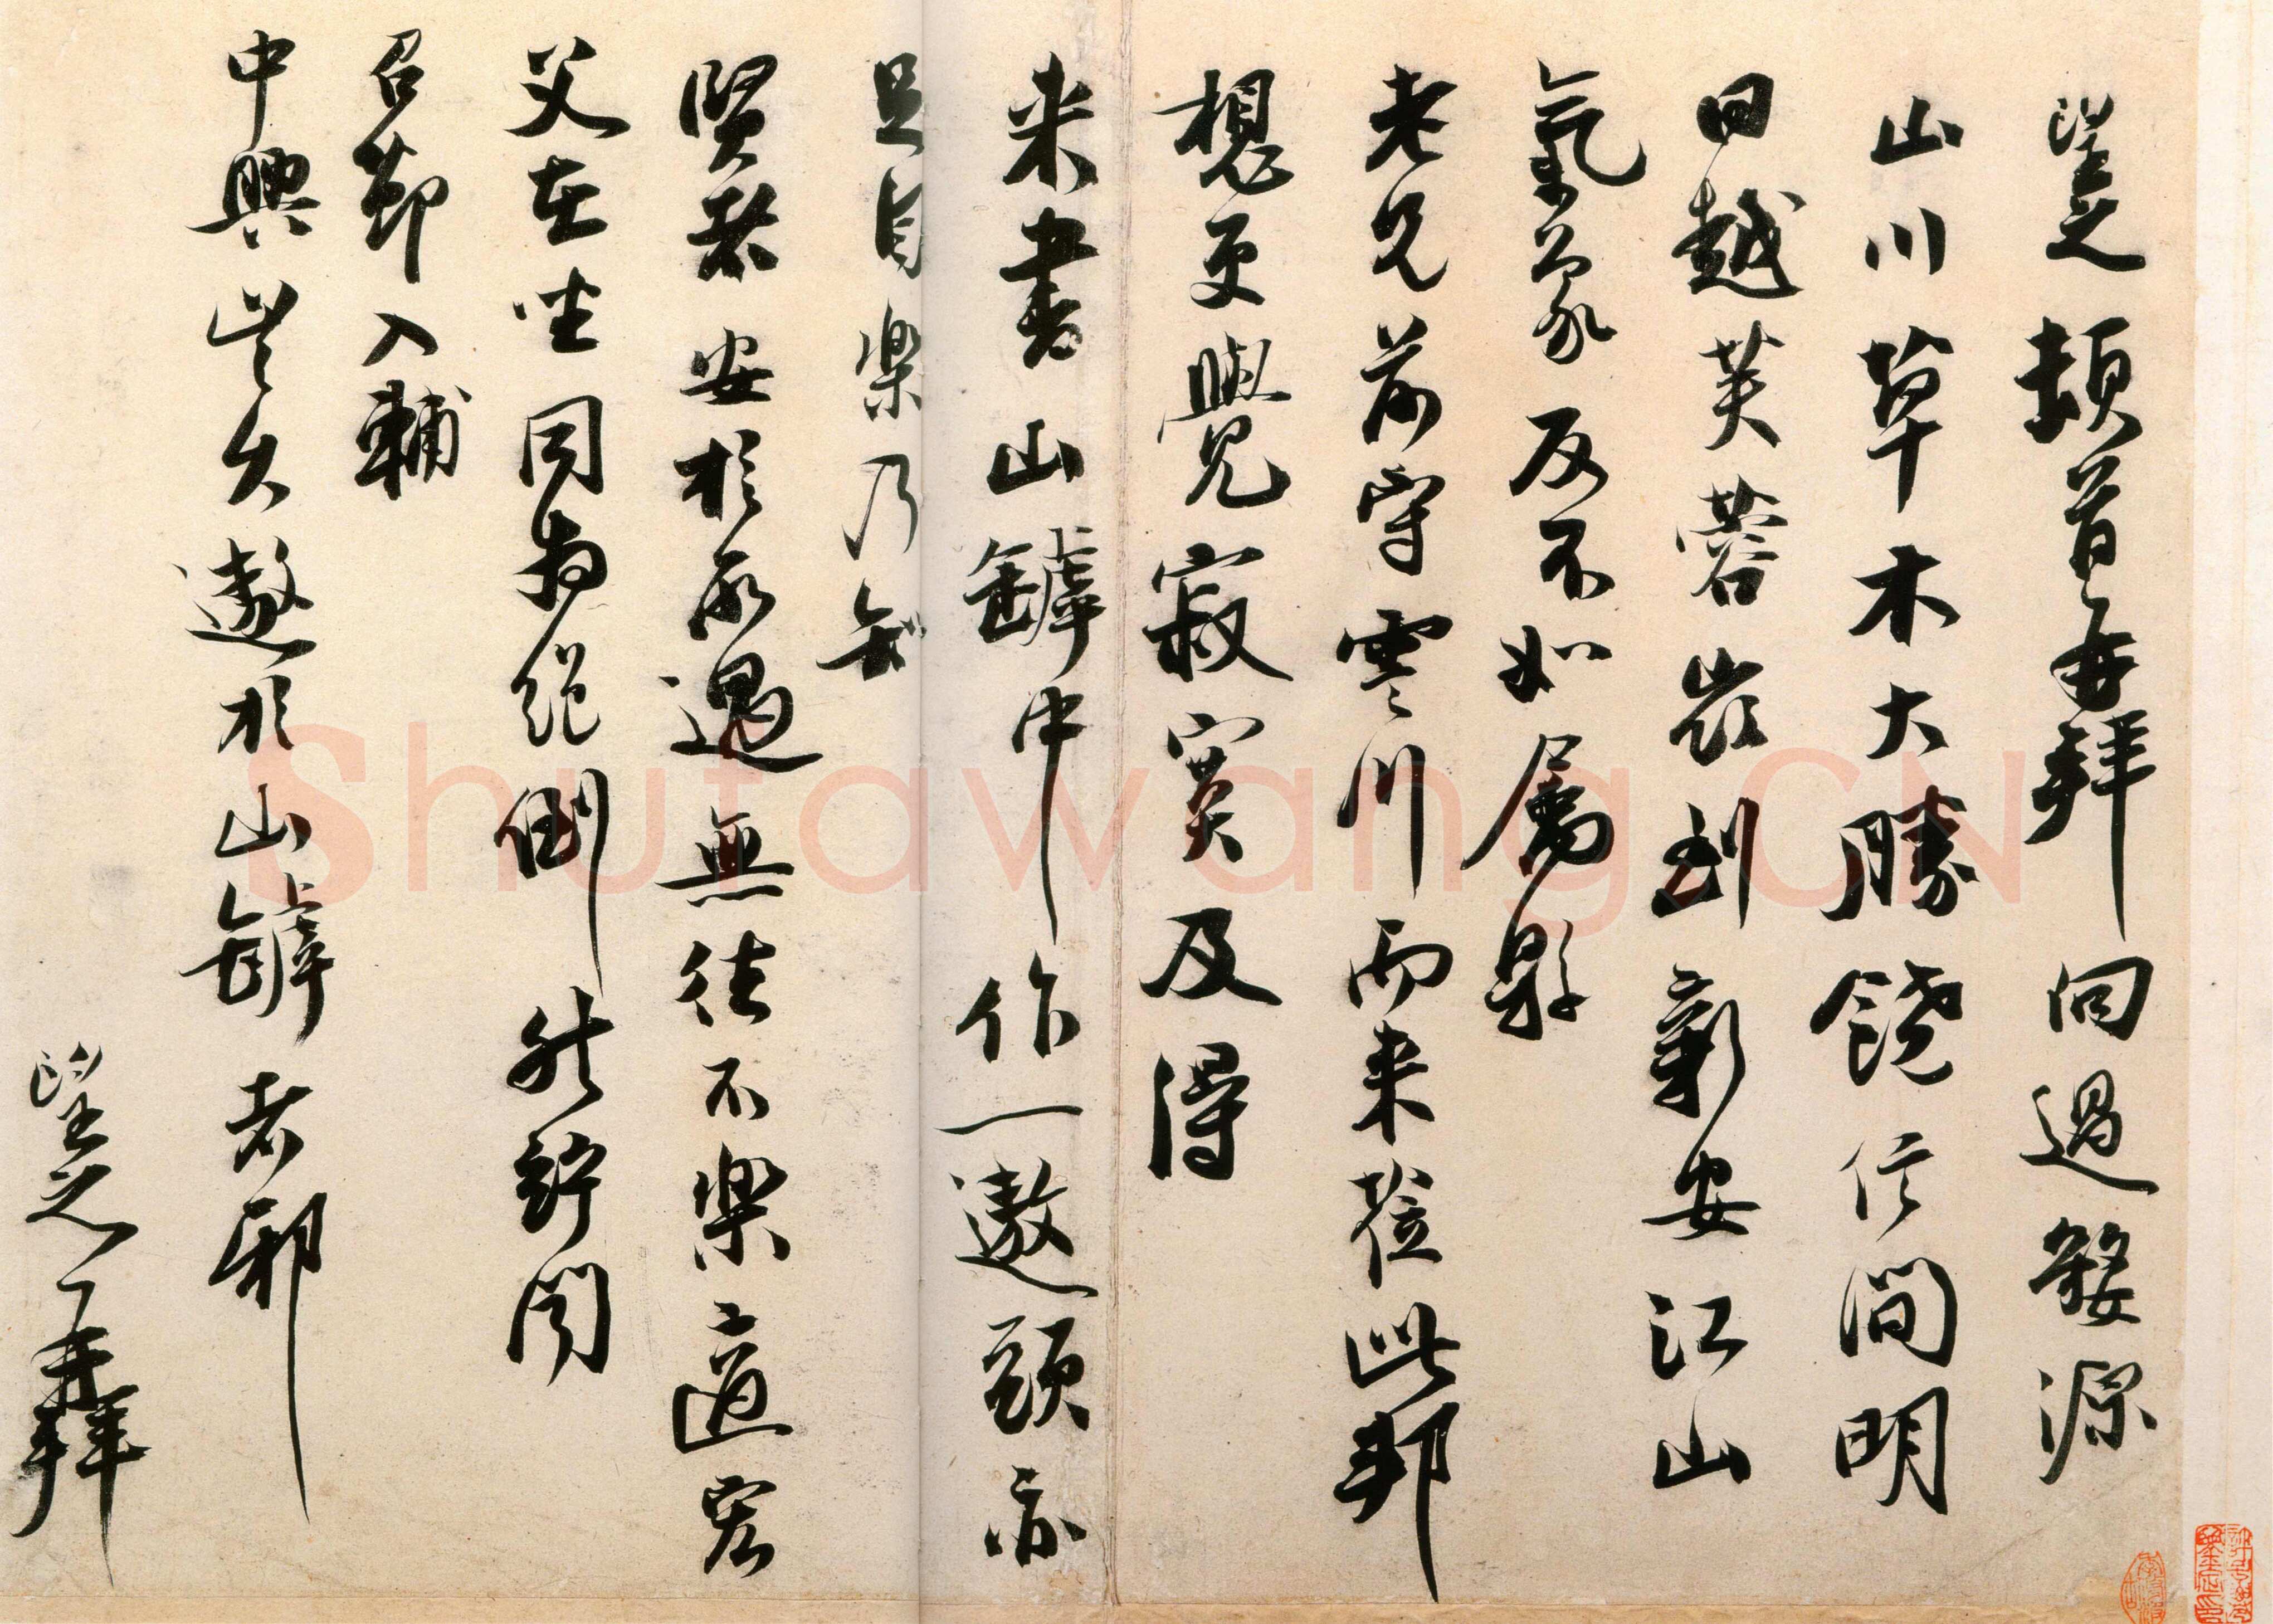 望之頓首再拜向過婺源
山川草木大勝饒信間明
日越芙蓉嶺到新安江山
氣象反不如屬縣
老兄前守霅川而来莅此邦
想更覺寂寞及得
来書山罅中作一遨頭亦
足自樂乃知
賢者安於所遇無往不樂適宏
父在坐同為絕倒然竚聞
召節入輔
中興豈久遨於山罅者邪
望之再拜
Shufawang.CN